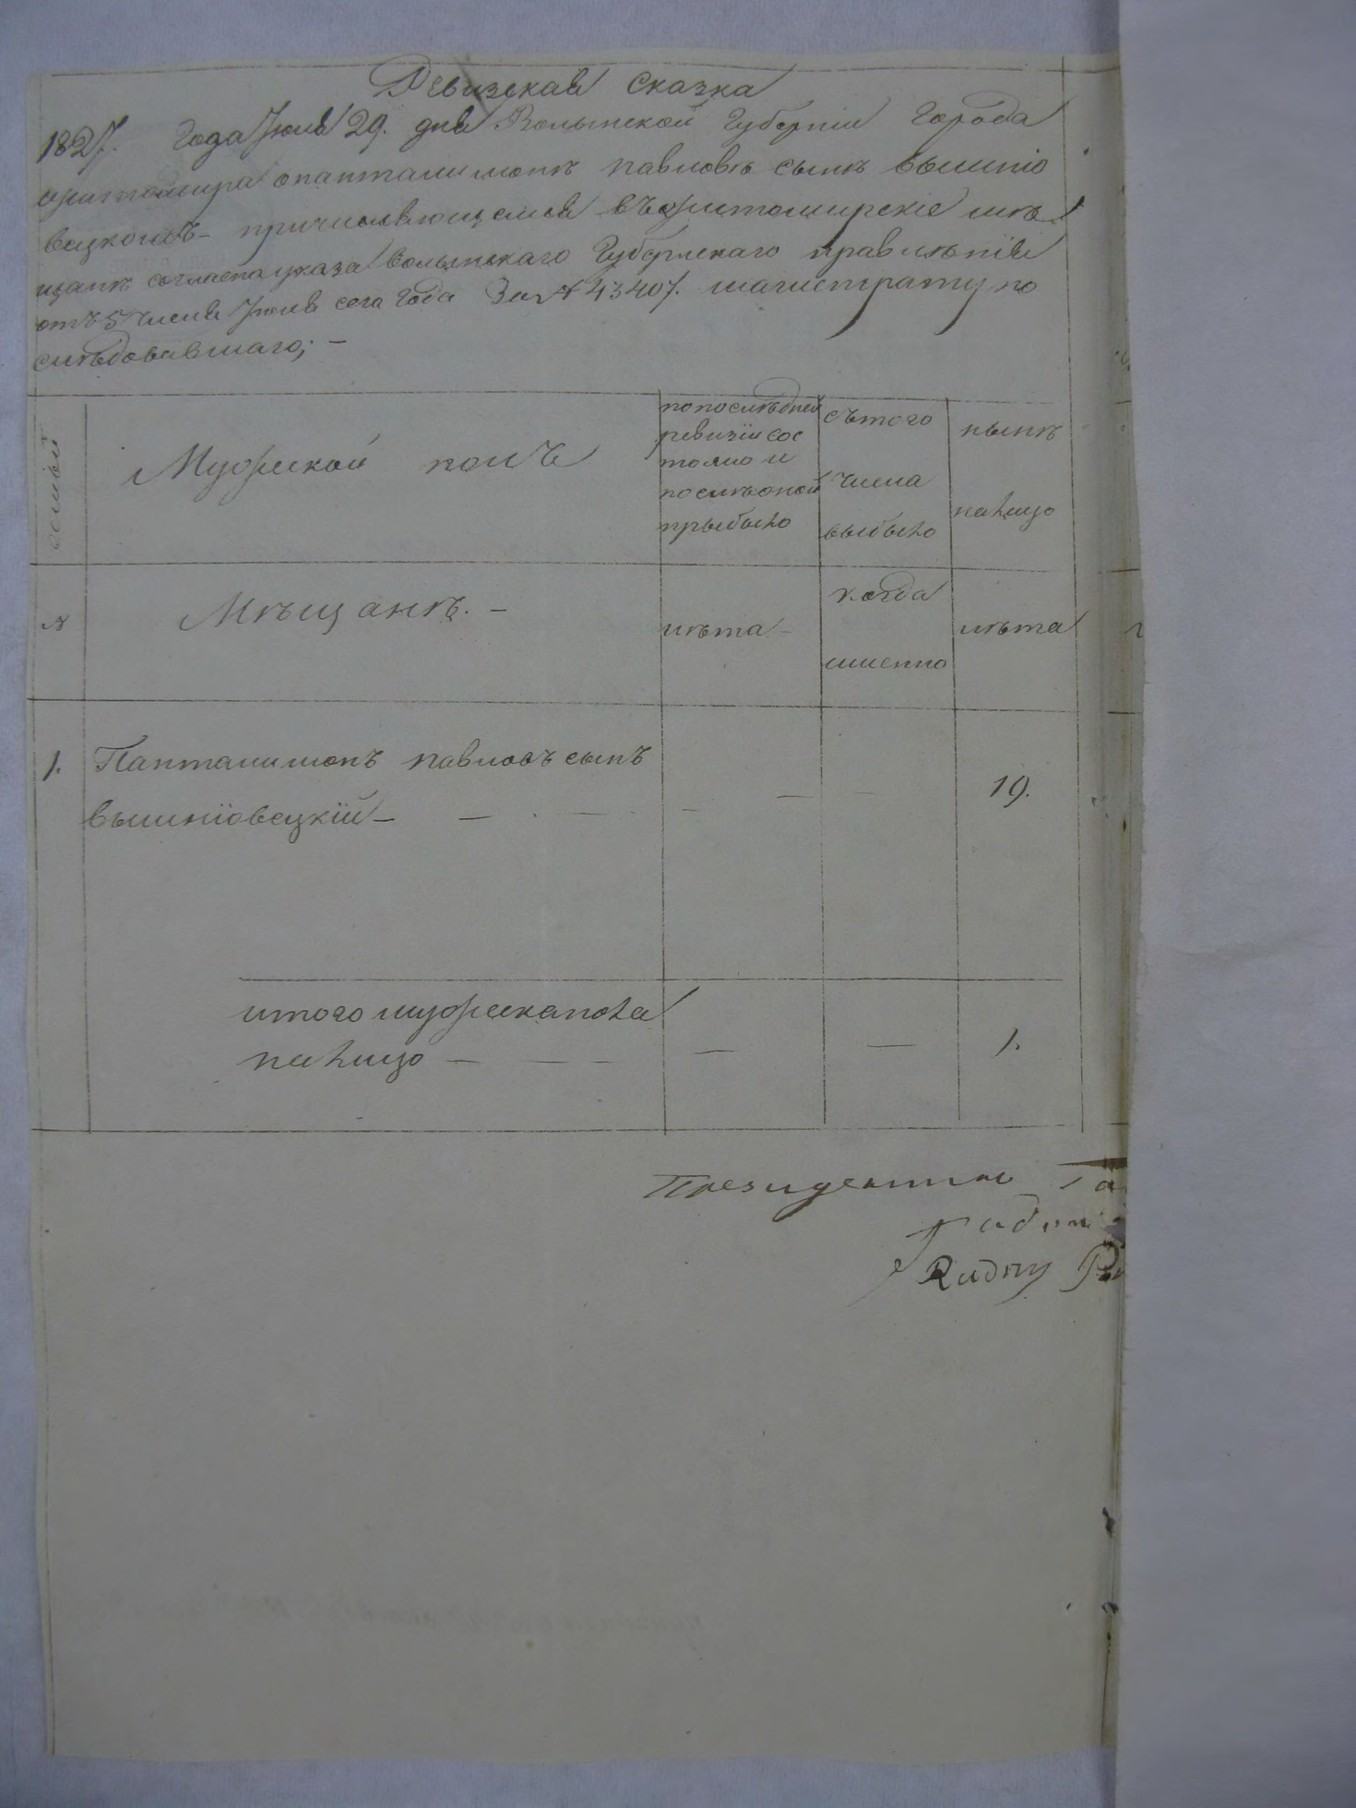 Ревизская Сказка
1827. Года Июля 29. дня Волынской Губерніи Города
Житомира опанталимонѣ павловѣ сынѣ вышнио
вецкомъ причисляющемся въ житомирские мѣ
щанѣ согласно указа волынскаго Губернскаго правленія
отъ 5 числа Июля сего Года За № 43407. магистрату по
слѣдовавшаго; —
семьи
Мужеской полъ
попослѣдней
ревизіи сос
тояло и
послѣ оной
прыбыло
съ того
числа
выбыло
нынѣ
налицо
№
Мѣщанѣ. —
лѣта —
когда
именно
лѣта
1. Панталимонъ павловъ сынъ
вышнiовецкій — — — — — — 19.
итого мужеска пола
налицо — — — — — 1.
Президентъ
Radny